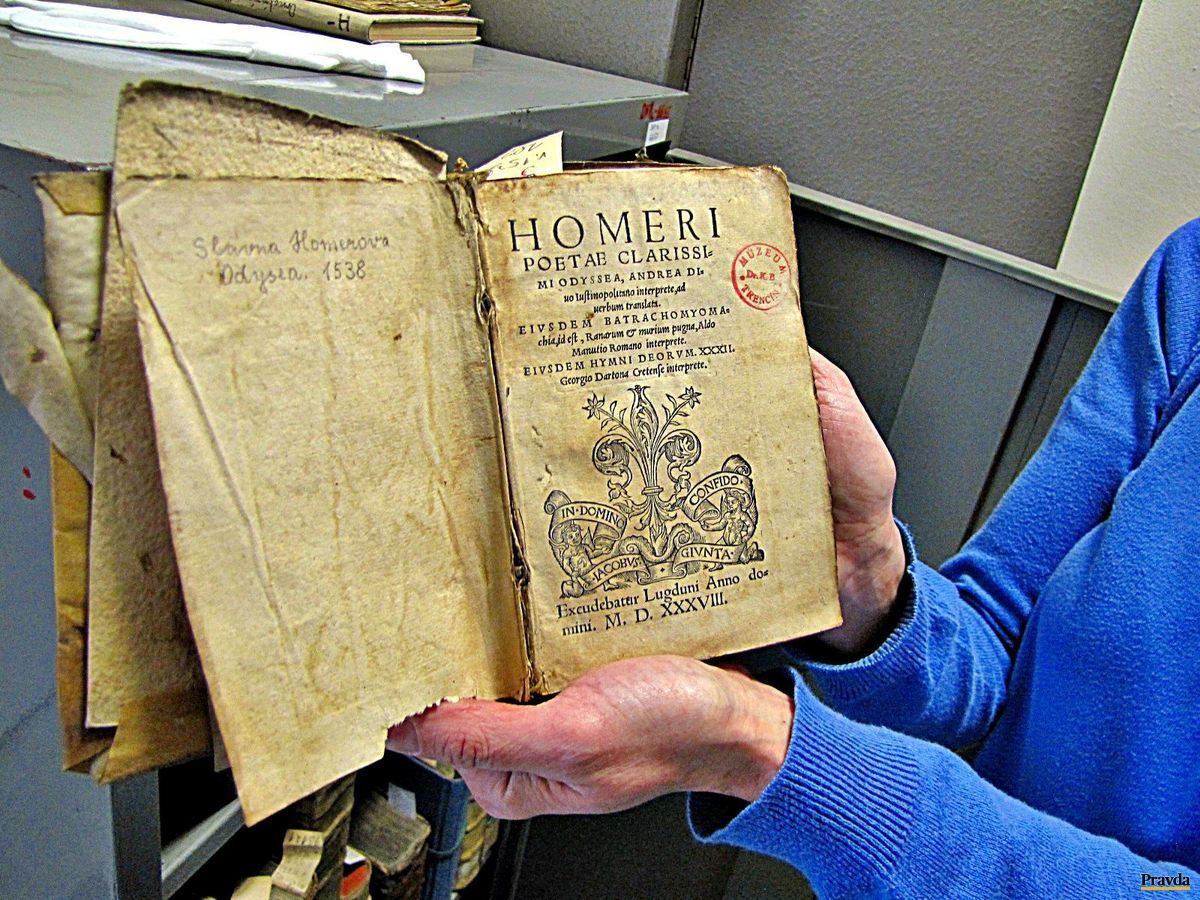 H-
Slavna Homerova
Odysea. 1538
HOMERI
POETAE CLARISSI=
MI ODYSSEA, ANDREA DI-
uo Iustinopolitano interprete, ad
uerbum translata.
EIVSDEM BATRACHOMYOMA-
chia, id est, Ranarum & murium pugna, Aldo
Manutio Romano interprete.
EIVSDEM HYMNI DEORVM. XXXII.
Georgio Dartona Cretense interprete.
MUZEUM
Dr. K. B.
TRENCIN
IN·DOMINO
CONFIDO·
IACOBVS
GIVNTA·
Excudebatur Lugduni Anno do=
mini. M. D. XXXVIII.
Pravda